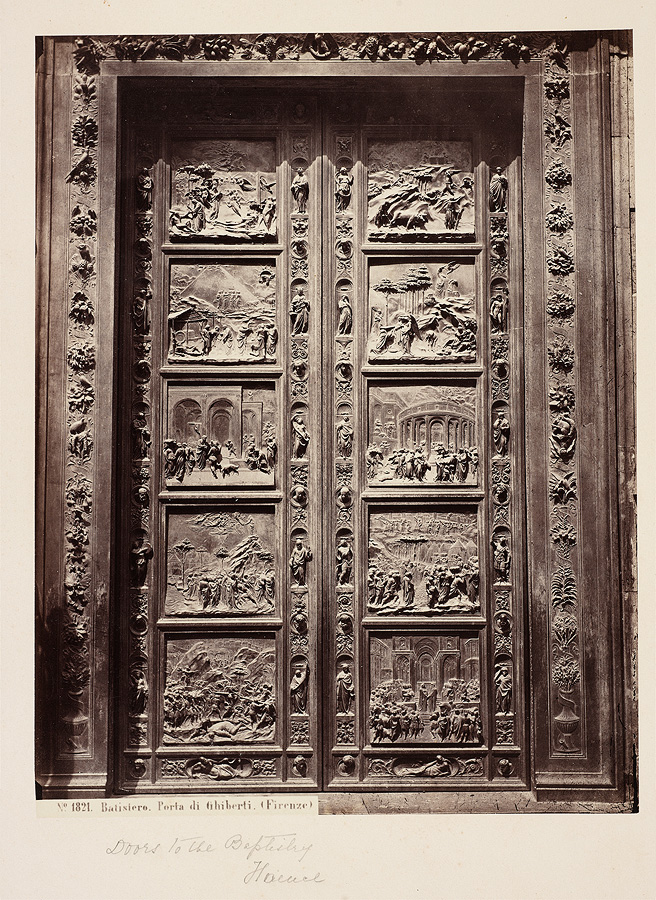 Nº 1821. Batistero. Porta di Ghiberti. (Firenze)
Doors to the Baptistry
Florence